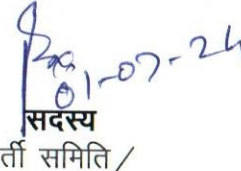 01-07-24
सदस्य
र्ती समिति /